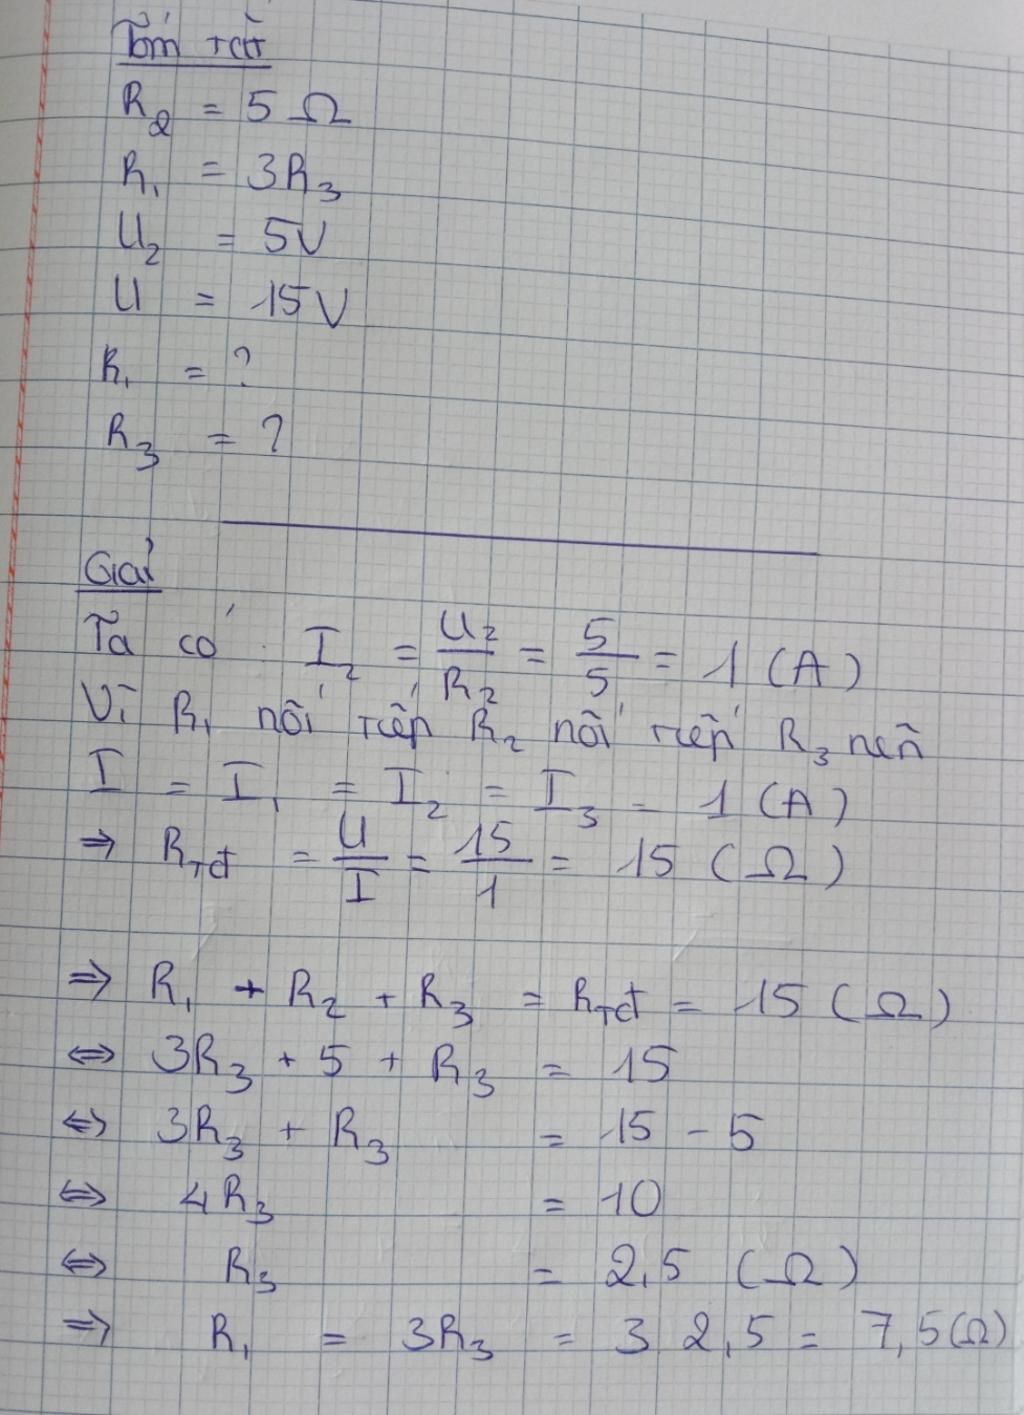 Tóm tắt
R₂ = 5 Ω
R₁ = 3R₃
U₂ = 5V
U = 15V
R₁ = ?
R₃ = ?
Giải
Ta có: I₂ = U₂/R₂ = 5/5 = 1 (A)
Vì R₁ nối tiếp R₂ nối tiếp R₃ nên
I = I₁ = I₂ = I₃ = 1 (A)
⇒ Rtđ = U/I = 15/1 = 15 (Ω)
⇒ R₁ + R₂ + R₃ = Rtđ = 15 (Ω)
⇔ 3R₃ + 5 + R₃ = 15
⇔ 3R₃ + R₃ = 15 - 5
⇔ 4R₃ = 10
⇔ R₃ = 2,5 (Ω)
⇒ R₁ = 3R₃ = 3 2,5 = 7,5 (Ω)